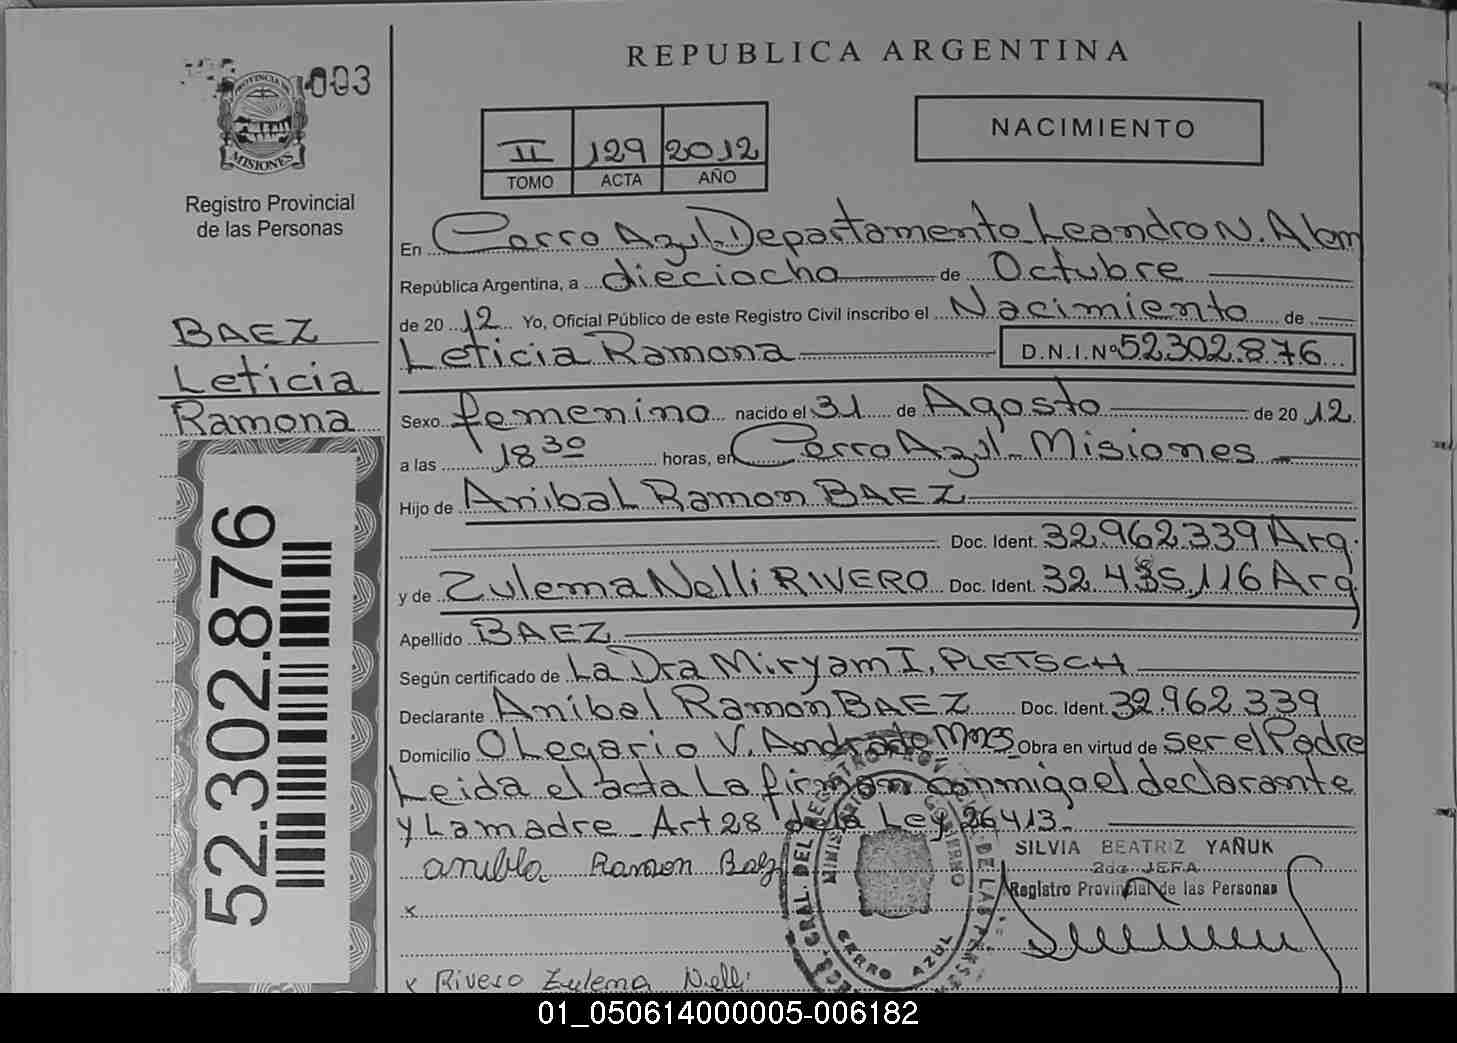 003
PROVINCIA DE
MISIONES
Registro Provincial
de las Personas
BAEZ
Leticia
Ramona
52.302.876
REPUBLICA ARGENTINA
II 129 2012
TOMO ACTA AÑO
NACIMIENTO
En Cerro Azul Departamento Leandro N. Alem
República Argentina, a dieciocho de Octubre
de 2012 Yo, Oficial Público de este Registro Civil inscribo el Nacimiento de
Leticia Ramona D.N.I.Nº 52.302.876
Sexo femenino nacido el 31 de Agosto de 2012
a las 18 30 horas, en Cerro Azul - Misiones
Hijo de Anibal Ramon BAEZ
Doc. Ident. 32.962.339 Arg.
y de Zulema Nelli RIVERO Doc. Ident. 32.435.116 Arg
Apellido BAEZ
Según certificado de La Dra Miryam I. PLETSCH
Declarante Anibal Ramon BAEZ Doc. Ident. 32.962.339
Domicilio OLegario V. Andrade Mnes Obra en virtud de ser el Padre
Leida el acta La firman conmigo el declarante
y La madre - Art 28 de la Ley 26413.
SILVIA BEATRIZ YAÑUK
2da JEFA
Registro Provincial de las Personas
Ramon Baez
x
x Rivero Zulema Nelli
CERRO AZUL
01_050614000005-006182